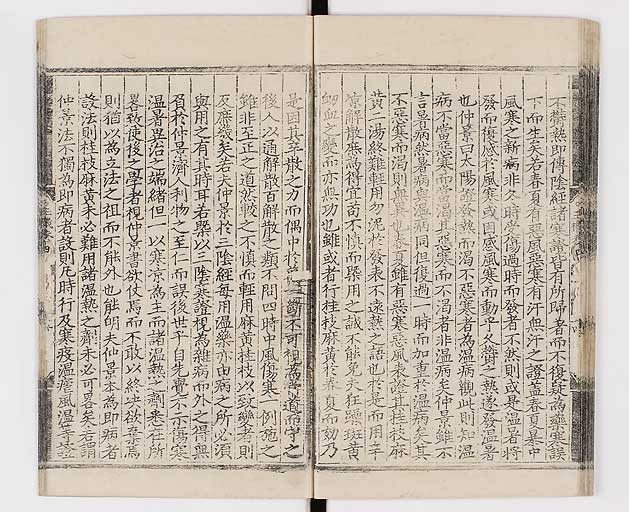 不鬱熱即傳陰經諸寒證皆有所歸著而不復疑為藥寒誤
下而生矣若春夏有惡風惡寒有汗無汗之證蓋春夏暴中
風寒之新病非冬時受傷過時而發者不然則或是溫暑將
發而復感於風寒或因感風寒而動乎久鬱之熱遂發溫暑
也仲景曰太陽病發熱而渴不惡寒者為溫病觀此則知溫
病不當惡寒而當渴其惡寒而不渴者非溫病矣仲景雖不
言暑病然暑病與溫病同但復過一時而加重於溫病矣其
不惡寒而渴則無異也春夏雖有惡寒惡風表證其桂枝麻
黃二湯終難輕用勿泥於發表不遠熱之語也於是而用辛
涼解散庶為得宜苟不慎而槩用之誠不能免夫狂躁斑黃
衄血之變而亦無功也雖或者行桂枝麻黃於春夏而効乃
是因其辛散之力而偶中於萬一斷不可視為常道而守之
後人以通解散百解散之類不問四時中風傷寒一例施之
雖非至正之道然較之不慎而輕用麻黃桂枝以致變者則
反庶幾矣若夫仲景於三陰經每用溫藥亦由病之所必須
與用之有其時耳若槩以三陰寒證視為雜病而外之得無
負於仲景濟人利物之至仁而誤後世乎自先賢有不示傷寒
溫暑異治之端緒但一以寒涼為主而諸溫熱之劑悉在所
畧致使後之學者視仲景書欲仗焉而不敢以終決欲棄焉
則猶以為立法之祖而不能外也能明夫仲景本為即病者
設法則桂枝麻黃未必難用諸溫熱之劑未必可畧矣若謂
仲景法不獨為即病者設則凡時行及寒疫溫瘧風溫等證